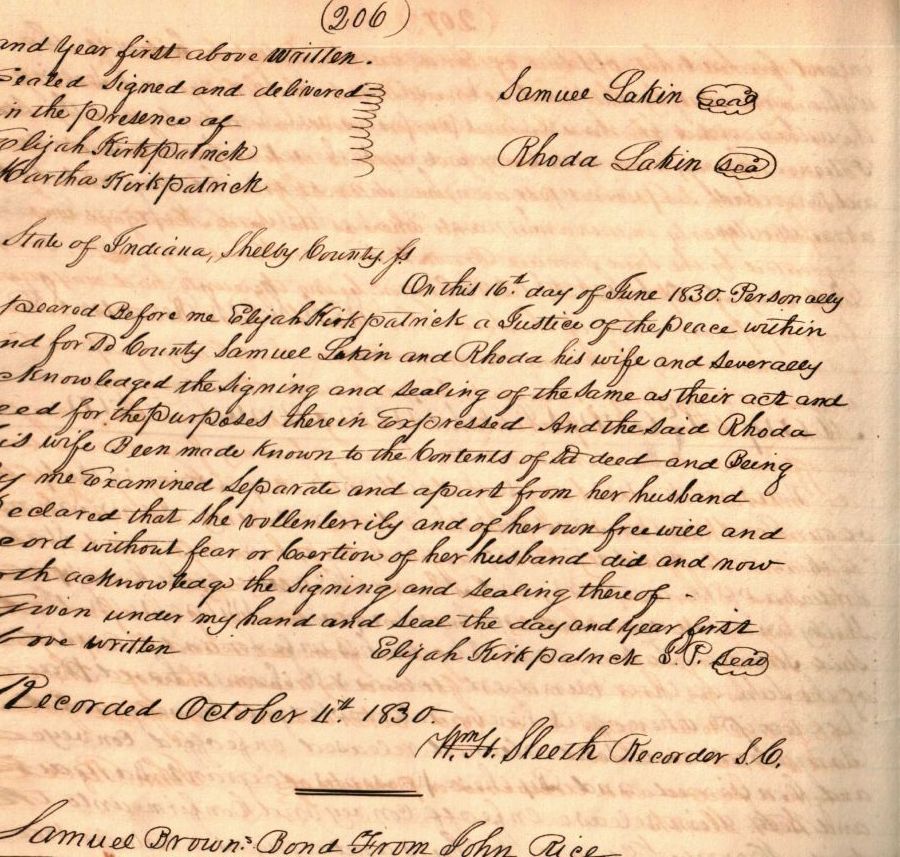 (206)
and year first above written.
Sealed Signed and delivered
in the presence of
Samuel Lakin Seal
Elijah Kirkpatrick
Rhoda Lakin Seal
Martha Kirkpatrick
State of Indiana, Shelby County, ss
On this 16th day of June 1830. Personally
peared Before me Elijah Kirkpatrick a Justice of the peace within
nd for Sd County Samuel Lakin and Rhoda his wife and severally
cknowledged the signing and sealing of the same as their act and
eed for the purposes therein Expressed And the said Rhoda
is wife Been made known to the Contents of Sd deed and Being
y me Examined Separate and apart from her husband
eclared that She vollenterrily and of her own free will and
cord without fear or Coertion of her husband did and now
oth acknowledge the Signing and sealing thereof -
Given under my hand and seal the day and year first
bove written Elijah Kirkpatrick J. P. Seal
Recorded October 4th. 1830.
Wm. H. Sleeth Recorder S. C.
Samuel Brown's Bond From John Rice